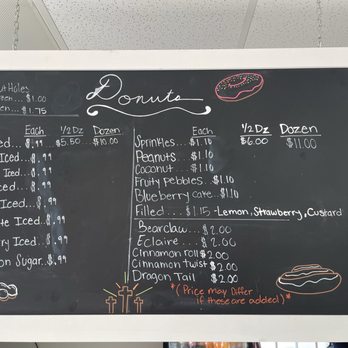 Donuts
ut Holes
zen... $1.00
zen... $1.75
Each 1/2 Dz Dozen
ed... $.99 $5.50 $10.00
Iced... $.99
Iced... $.99
Iced... $.99
Iced... $.99
te Iced... $.99
ry Iced... $.99
on Sugar... $.99
Each 1/2 Dz Dozen
Sprinkles... $1.10 $6.00 $11.00
Peanuts... $1.10
Coconut... $1.10
Fruity pebbles... $1.10
Blueberry cake... $1.10
Filled... $1.15 - Lemon, Strawberry, Custard
Bearclaw... $2.00
Eclaire... $2.00
Cinnamon roll $2.00
Cinnamon twist $2.00
Dragon Tail $2.00
*(Price may Differ
if these are added)*